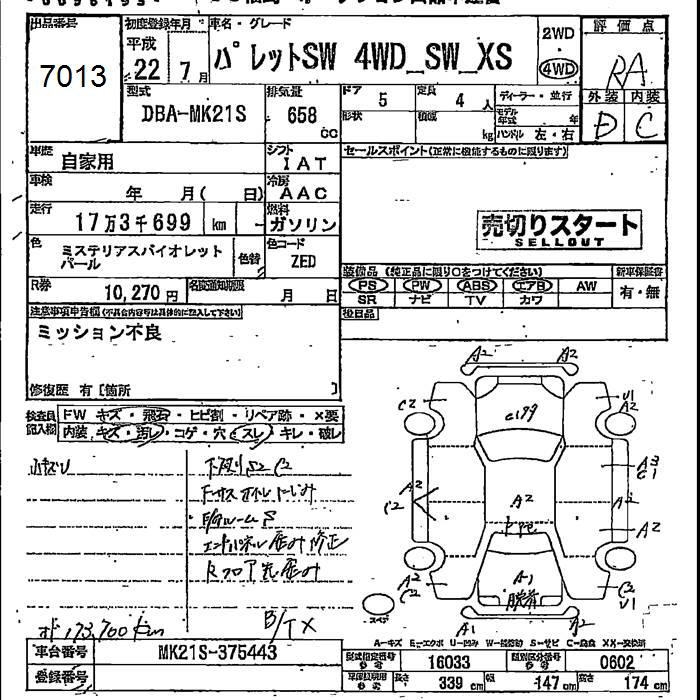 出品番号
7013
初度登録年月
平成
22年 7月
車名・グレード
パレットSW 4WD_SW_XS
2WD
4WD
評価点
RA
外装 内装
D C
型式
DBA-MK21S
排気量
658 cc
ドア 5
定員 4 人
形状
積載 kg
ディーラー・並行
モデル年式 年
ハンドル 左・右
車歴
自家用
シフト
IAT
セールスポイント(正常に機能するものに限ります)
車検 年 月( 日)
冷房
AAC
走行
17万3千699 km
燃料
ガソリン
売切りスタート
SELLOUT
色
ミステリアスバイオレット
パール
色替
色コード
ZED
装備品 (純正品に限り○をつけてください)
新車保証書
PS PW ABS エアB AW
SR ナビ TV カワ
有・無
R券
10,270 円
名変通知期限
月 日
後日品
注意事項申告欄(不具合内容等は具体的に記入して下さい)
ミッション不良
修復歴 有[箇所 ]
検査員記入欄
FW キズ・飛石・ヒビ割・リペア跡・×要
内装 キズ・汚レ・コゲ・穴・スレ・キレ・破レ
小キズU
下廻りS2 C2
エンドパネル歪み修正
Rフロア先歪み
B/TX
173,700km
A2 A2
C2
U1
A2
A3
C1
A2
C2
A2
A2
A2
A2
C2
A1
脱着
C2
U1
A1
A2
スペア
A-キズ E-エクボ U-凹み W-補修跡 S-サビ C-腐食 XX-交換済
車台番号
MK21S-375443
登録番号
型式指定番号
16033
類別区分番号
0602
長さ 339 cm
幅 147 cm
高さ 174 cm